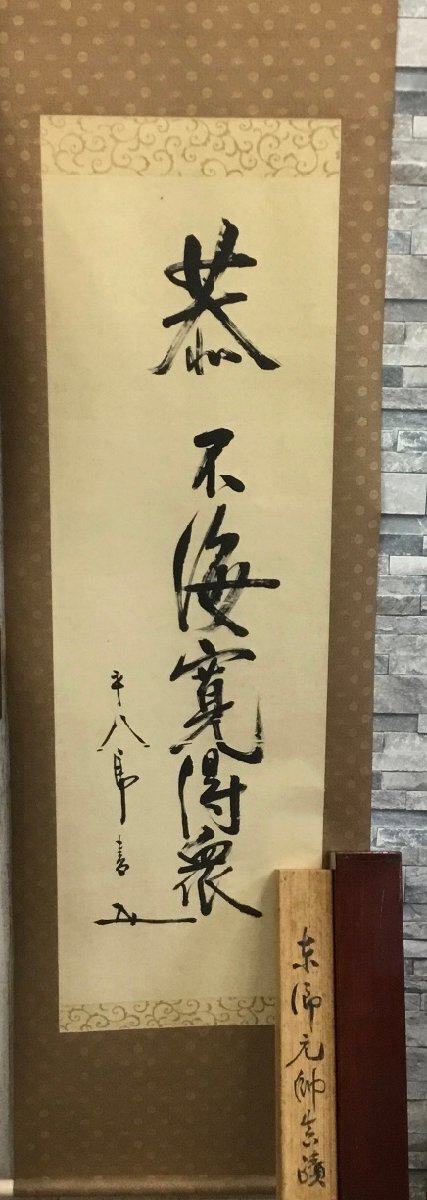 恭不侮寛得衆
平八郎書
東郷元帥真蹟